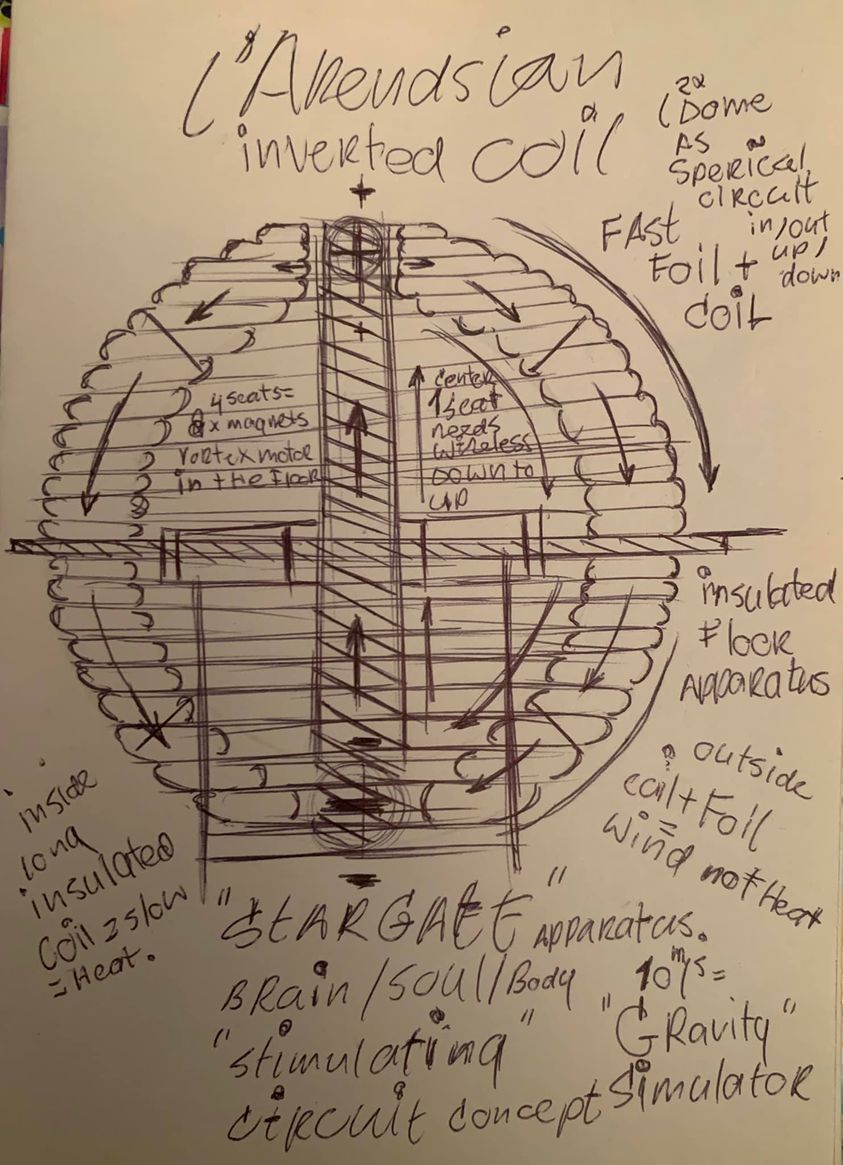 L'Arendsian
inverted coil
2x
(Dome
AS
Sperical
circuit
in/out
up/
down
FAst
Foil +
coil
+
+
4 seats=
8x magnets
vortex motor
in the Floor
center
1 seat
needs
wireless
Down to
up
insulated
Floor
Apparatus
outside
coil + Foil
=
wind not Heat
inside
long
insulated
coil = slow
= Heat.
-
-
"StARGAtE" Apparatus.
BRain/soul/Body
"stimulating"
circuit concept
10 m/s =
"GRavity"
simulatoR